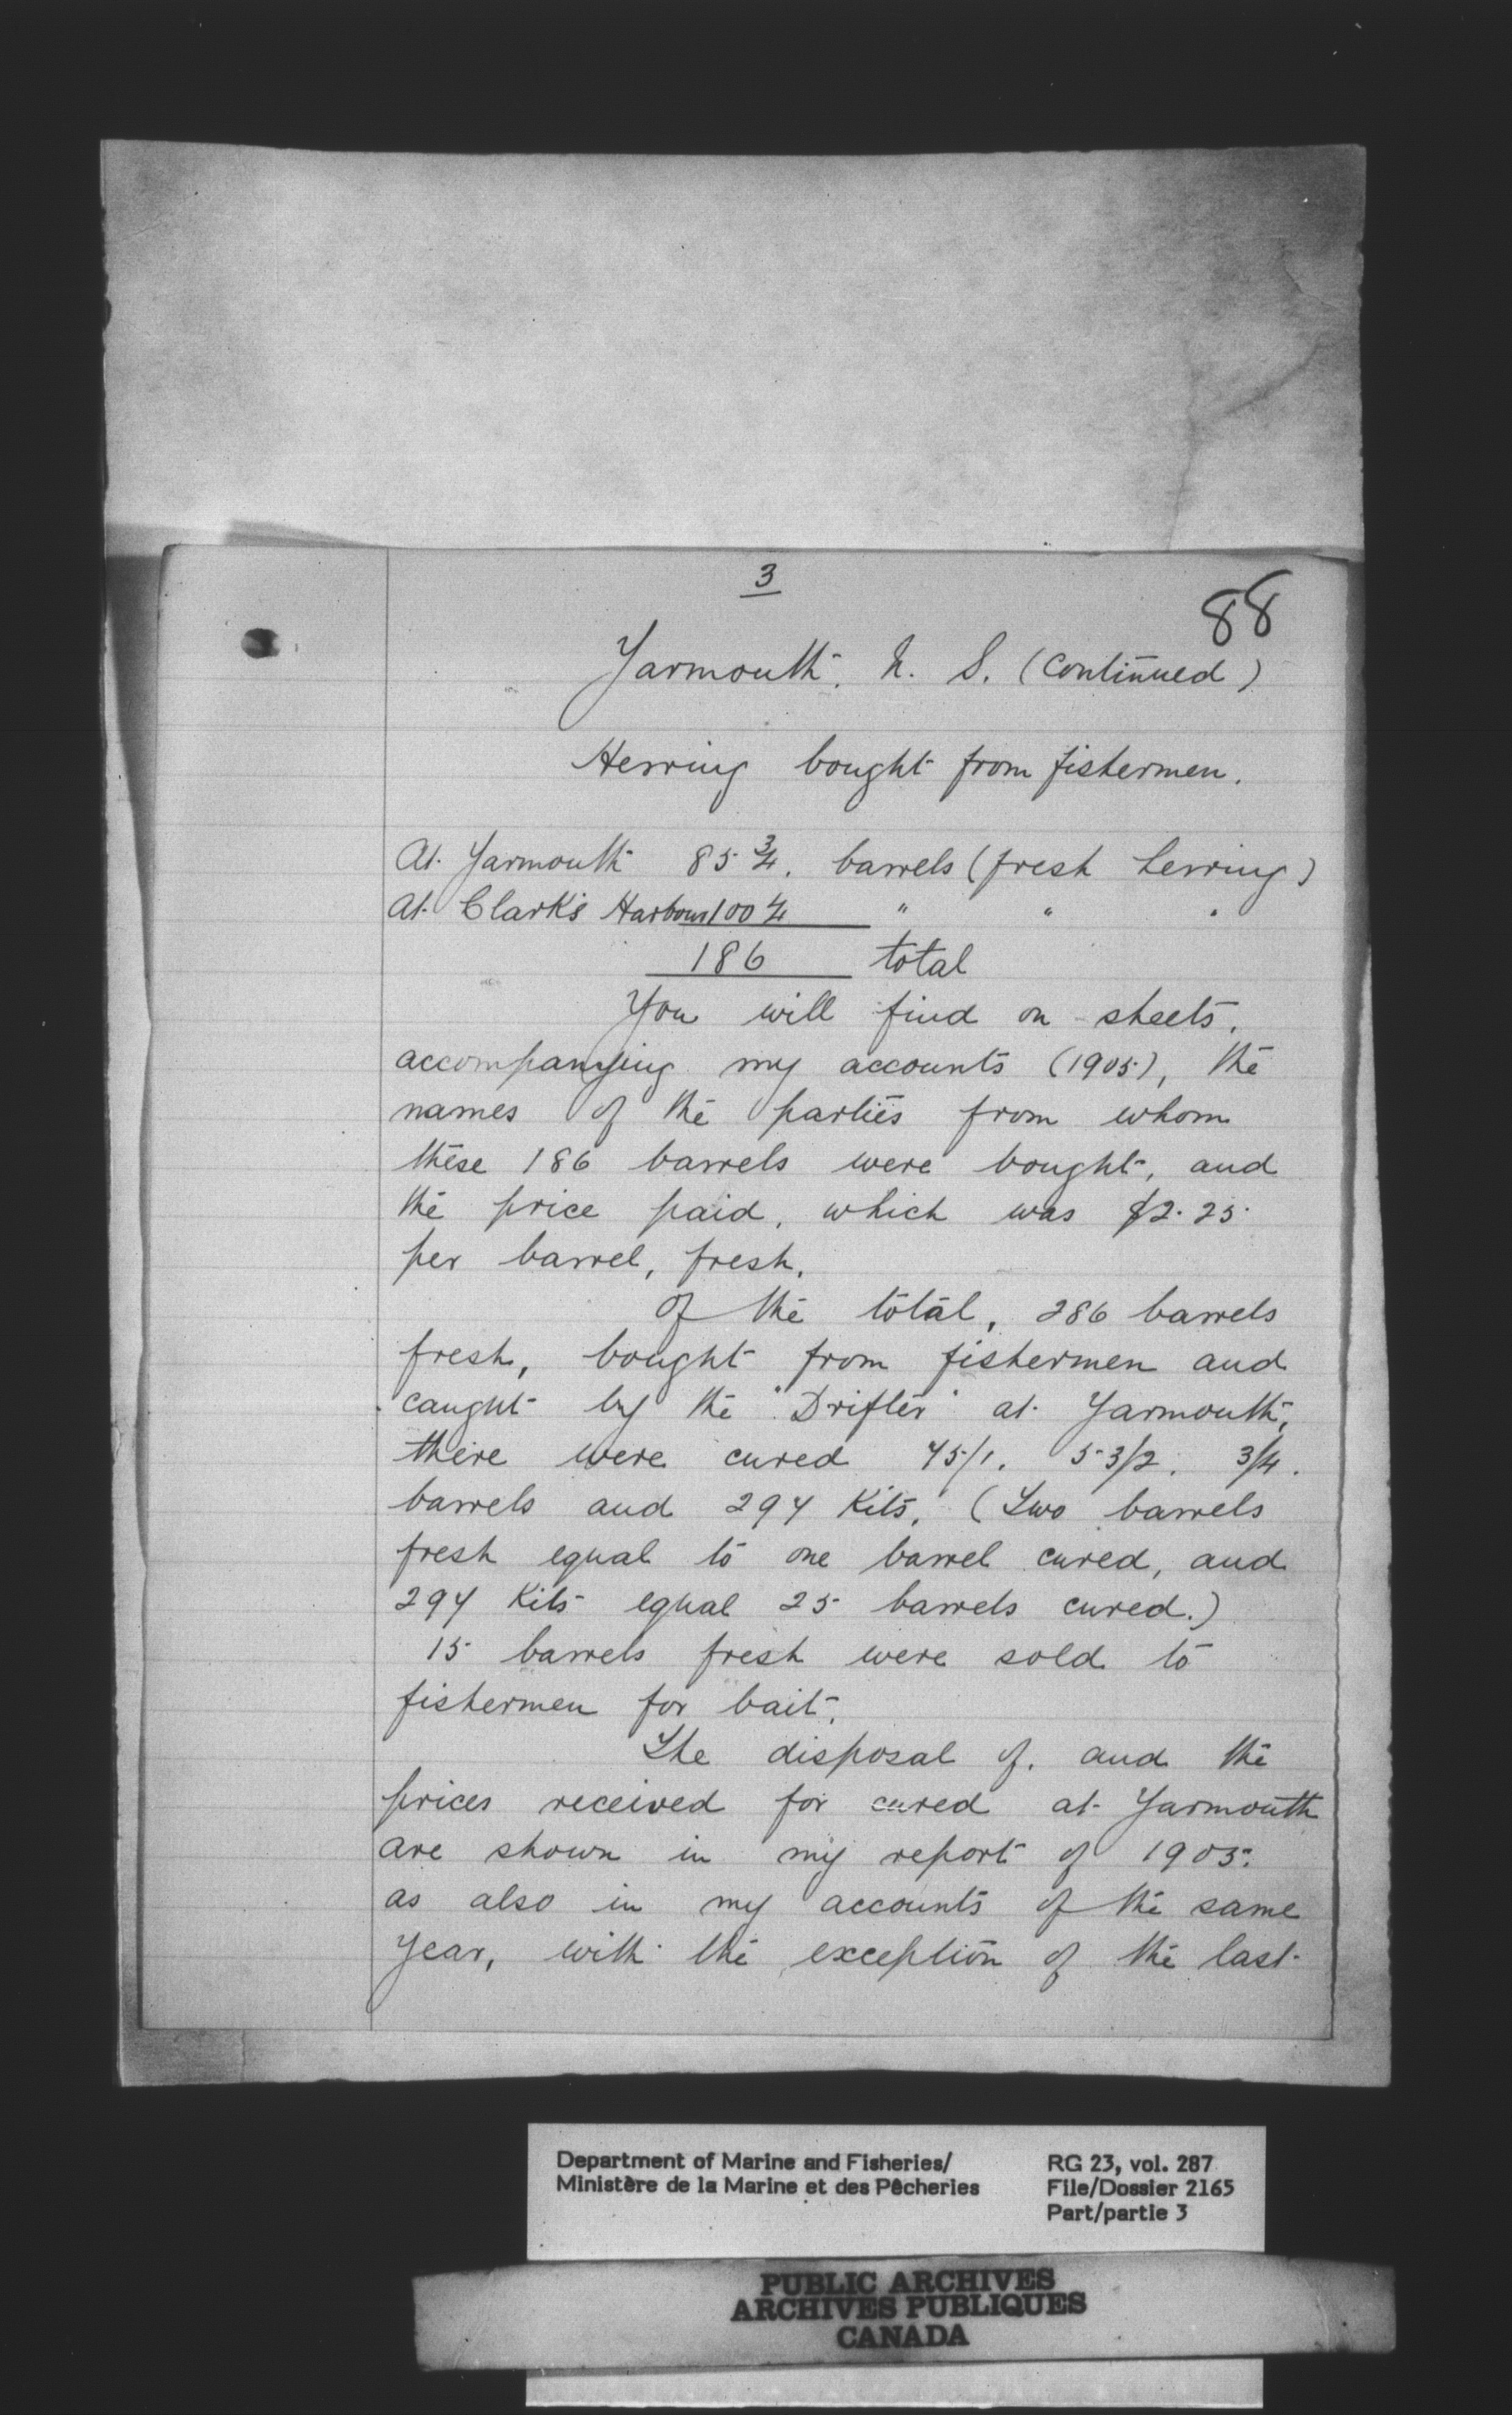 3
88
Yarmouth. N. S. (continued)
Herring bought from fishermen.
At Yarmouth 85 3/4. barrels (fresh herring)
At Clark's Harbour 100 1/4 " " "
186 total
You will find on sheets,
accompanying my accounts (1905), the
names of the parties from whom
these 186 barrels were bought, and
the price paid, which was $2.25
per barrel, fresh.
Of the total, 286 barrels
fresh, bought from fishermen and
caught by the "Drifter" at Yarmouth,
there were cured 75/1. 53/2. 3/4.
barrels and 297 Kits. (Two barrels
fresh equal to one barrel cured, and
297 Kits equal 25 barrels cured.)
15 barrels fresh were sold to
fishermen for bait.
The disposal of, and the
prices received for cured at Yarmouth
are shown in my report of 1905.
as also in my accounts of the same
year, with the exception of the last
Department of Marine and Fisheries/ RG 23, vol. 287
Ministère de la Marine et des Pêcheries File/Dossier 2165
Part/partie 3
PUBLIC ARCHIVES
ARCHIVES PUBLIQUES
CANADA